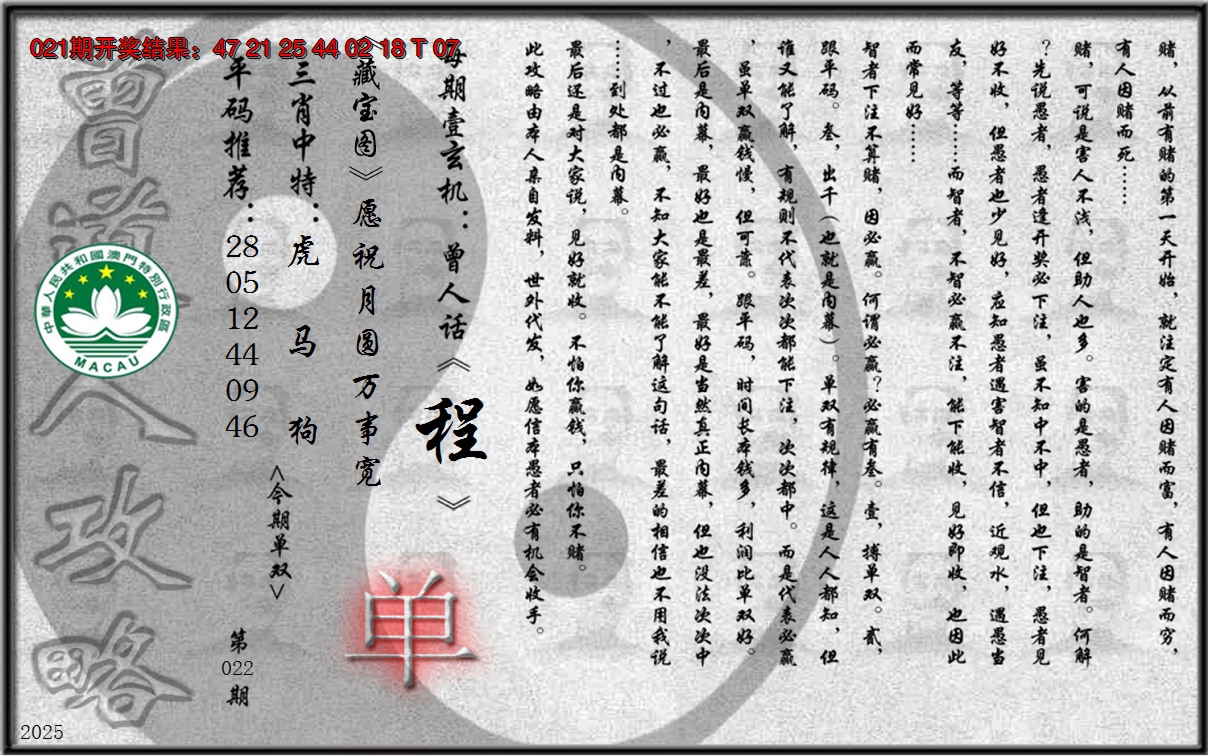 021期开奖结果：47 21 25 44 02 18 T 07
赌，从前有赌的第一天开始，就注定有人因赌而富，有人因赌而穷，
有人因赌而死……
赌，可说是害人不浅，但助人也多。害的是愚者，助的是智者。何解
？先说愚者，愚者逢开奖必下注，虽不知中不中，但也下注，愚者见
好不收，但愚者也少见好，应知愚者遇害智者不信，近观水，遇愚当
友，等等……而智者，不智必赢不注，能下能收，见好即收，也因此
而常见好……
智者下注不算赌，因必赢。何谓必赢？必赢有叁。壹，搏单双。贰，
跟平码。叁，出千（也就是内幕）。单双有规律，这是人人都知，但
谁又能了解，有规则不代表次次都能下注，次次都中。而是代表必赢
，虽单双赢钱慢，但可靠。跟平码，时间长本钱多，利润比单双好。
最后是内幕，最好也是最差，最好是当然真正内幕，但也没法次次中
，不过也必赢，不知大家能不能了解这句话，最差的相信也不用我说
……到处都是内幕。
最后还是对大家说，见好就收。不怕你赢钱，只怕你不赌。
此攻略由本人亲自发料，世外代发，如愿信本愚者必有机会收手。
每期壹玄机：曾人话《程》
《藏宝图》愿祝月圆万事宽
单
三肖中特：虎 马 狗
<今期单双>
平码推荐：28 05 12 44 09 46
第022期
曾道人攻略
中華人民共和國澳門特別行政區
MACAU
2025